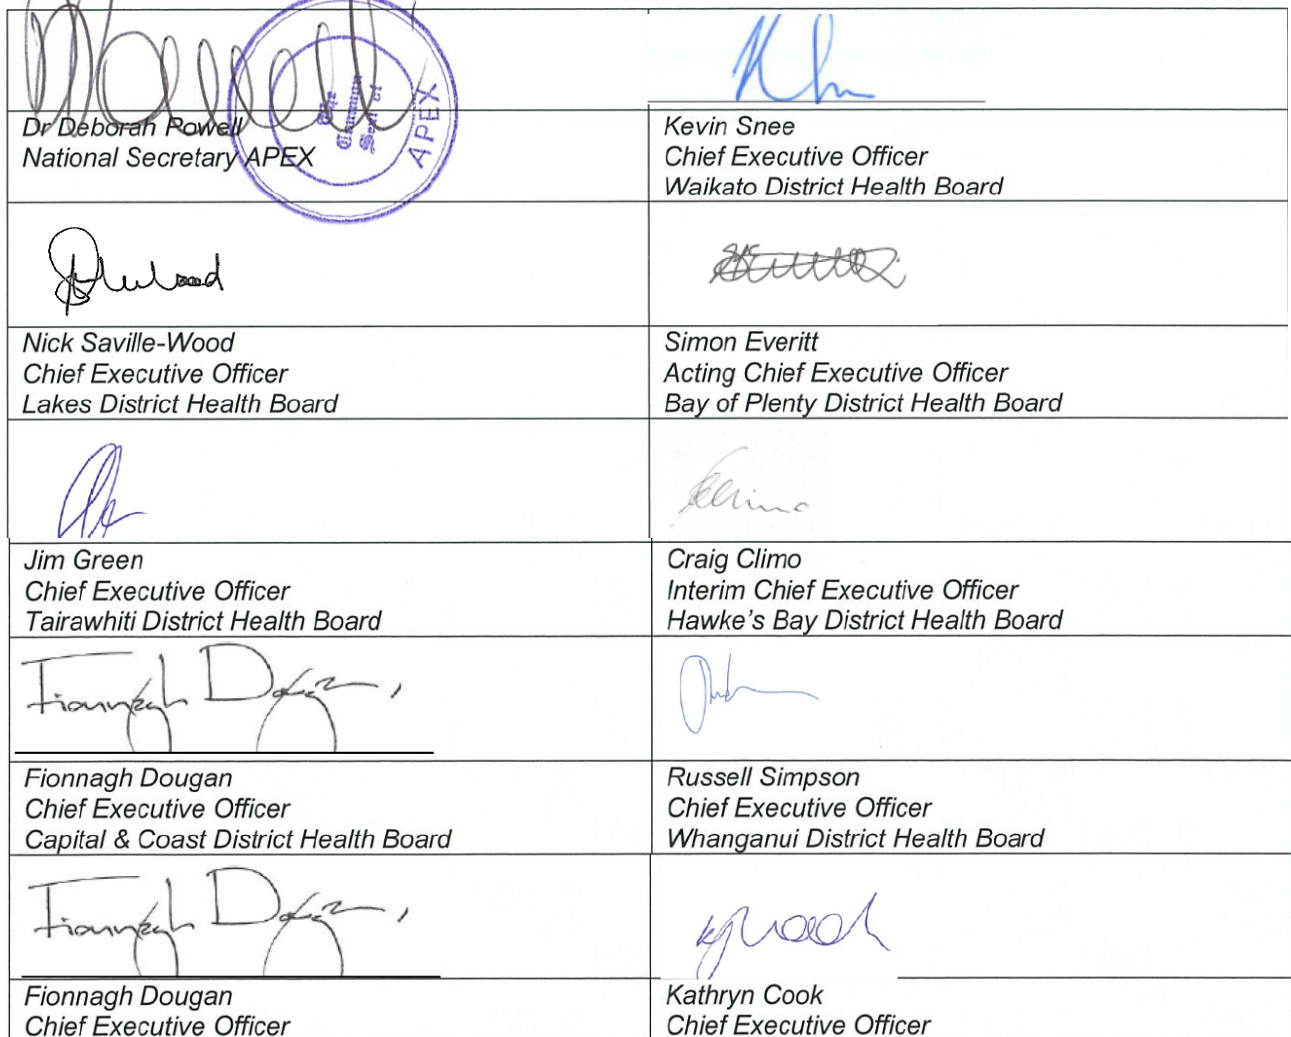 The
Common
Seal of
APEX
Dr Deborah Powell
National Secretary APEX
Kevin Snee
Chief Executive Officer
Waikato District Health Board
Nick Saville-Wood
Chief Executive Officer
Lakes District Health Board
Simon Everitt
Acting Chief Executive Officer
Bay of Plenty District Health Board
Jim Green
Chief Executive Officer
Tairawhiti District Health Board
Craig Climo
Interim Chief Executive Officer
Hawke's Bay District Health Board
Fionnagh Dougan
Fionnagh Dougan
Chief Executive Officer
Capital & Coast District Health Board
Russell Simpson
Chief Executive Officer
Whanganui District Health Board
Fionnagh Dougan
Fionnagh Dougan
Chief Executive Officer
Kathryn Cook
Chief Executive Officer